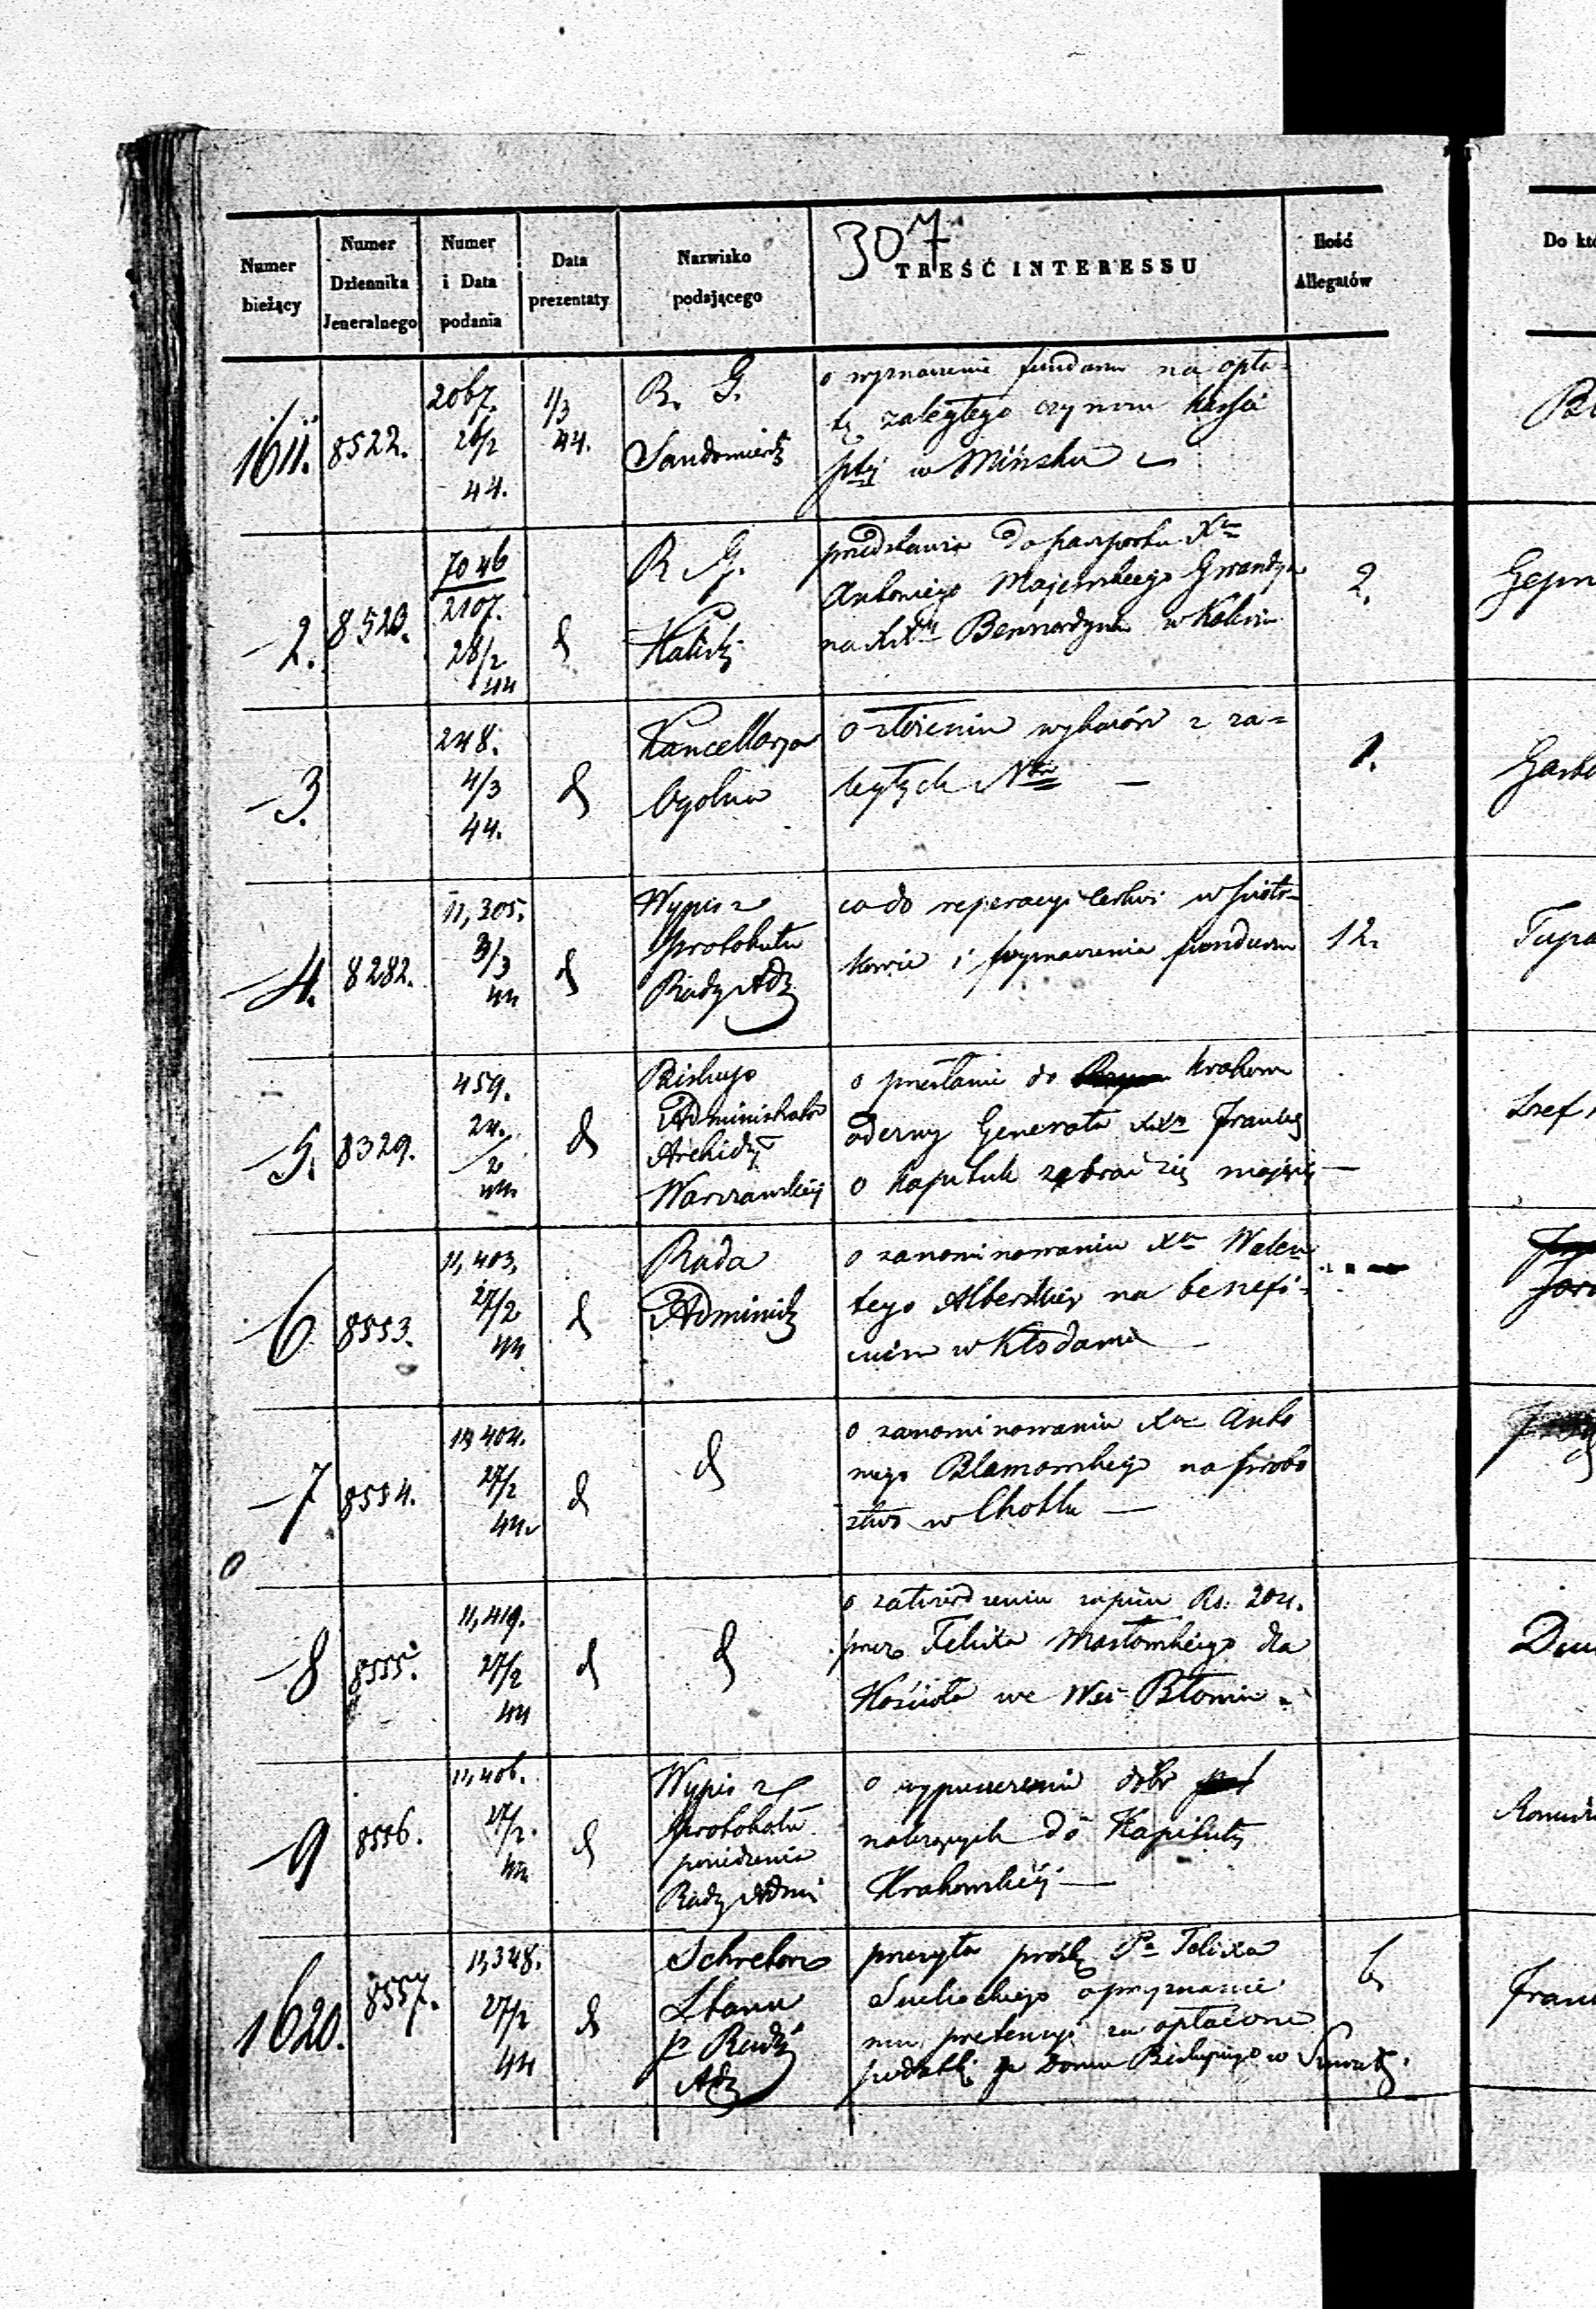 307
Numer bieżący
Numer Dziennika Jeneralnego
Numer i Data podania
Data prezentaty
Nazwisko podającego
TREŚĆ INTERESSU
Ilość Allegatów
Do kt
1611. 8522. 2067. 26/2 44. 1/3 44. R. G. Sandomiersk
o wyznaczenie funduszu na opła-
tę zaległego czynszu
w Mińsku
2. 8523. 7046 2107. 28/2 44 d R. G. Kalisk 2. Gepn
przedstawia do paszportu Xa
Antoniego Majewskiego Gwardyana
na XX Bernardynów w Kole
3. 248. 4/3 44. d Kancellarya Ogólna 1.
o złożenia wykazów z za-
ległych Nrów
4. 8282. 11,305. 3/3 44 d Wypis z Protokułu Rady Adm 12. Tupa
co do reperacyi Cerkwi w Piotr-
kowie i wyznaczenia funduszu
5. 8329. 459. 24./2 44. d Biskup Administrator Archidy Warszawskiej Josef
o przesłanie do Krakowa
odezwy Generała XX Francisz
o Kapitule zebrać się mającej
6 8553. 11,403. 27/2 44 d Rada Administ
o zanominowaniu Xa Walen
tego Alberskiego na benefi-
cium w Kłodawie
7 8554. 11,404. 27/2 44. d d
o zanominowaniu Xa Anto
niego na probo
stwo w Chotlu
8 8555. 11,419. 27/2 44 d d
o zatwierdzeniu zapisu Rs. 204.
przez Felixa Masłowskiego dla
Kościoła we Wsi Błoniu
9 8556. 11,406. 27/2. 44. d Wypis z Protokułu posiedzenia Rady Admi
o wypuszczeniu dóbr
należących do Kapituły
Krakowskiéj
1620. 8557. 11,348. 27/2 44 d Sekretarz Stanu p. Radzie Ad 6 Fran
przesyła prośbę Pa Felixa
Suchockiego o przyznanie
mu pretensyi za opłacone
podatki z Domu Biskupiego w